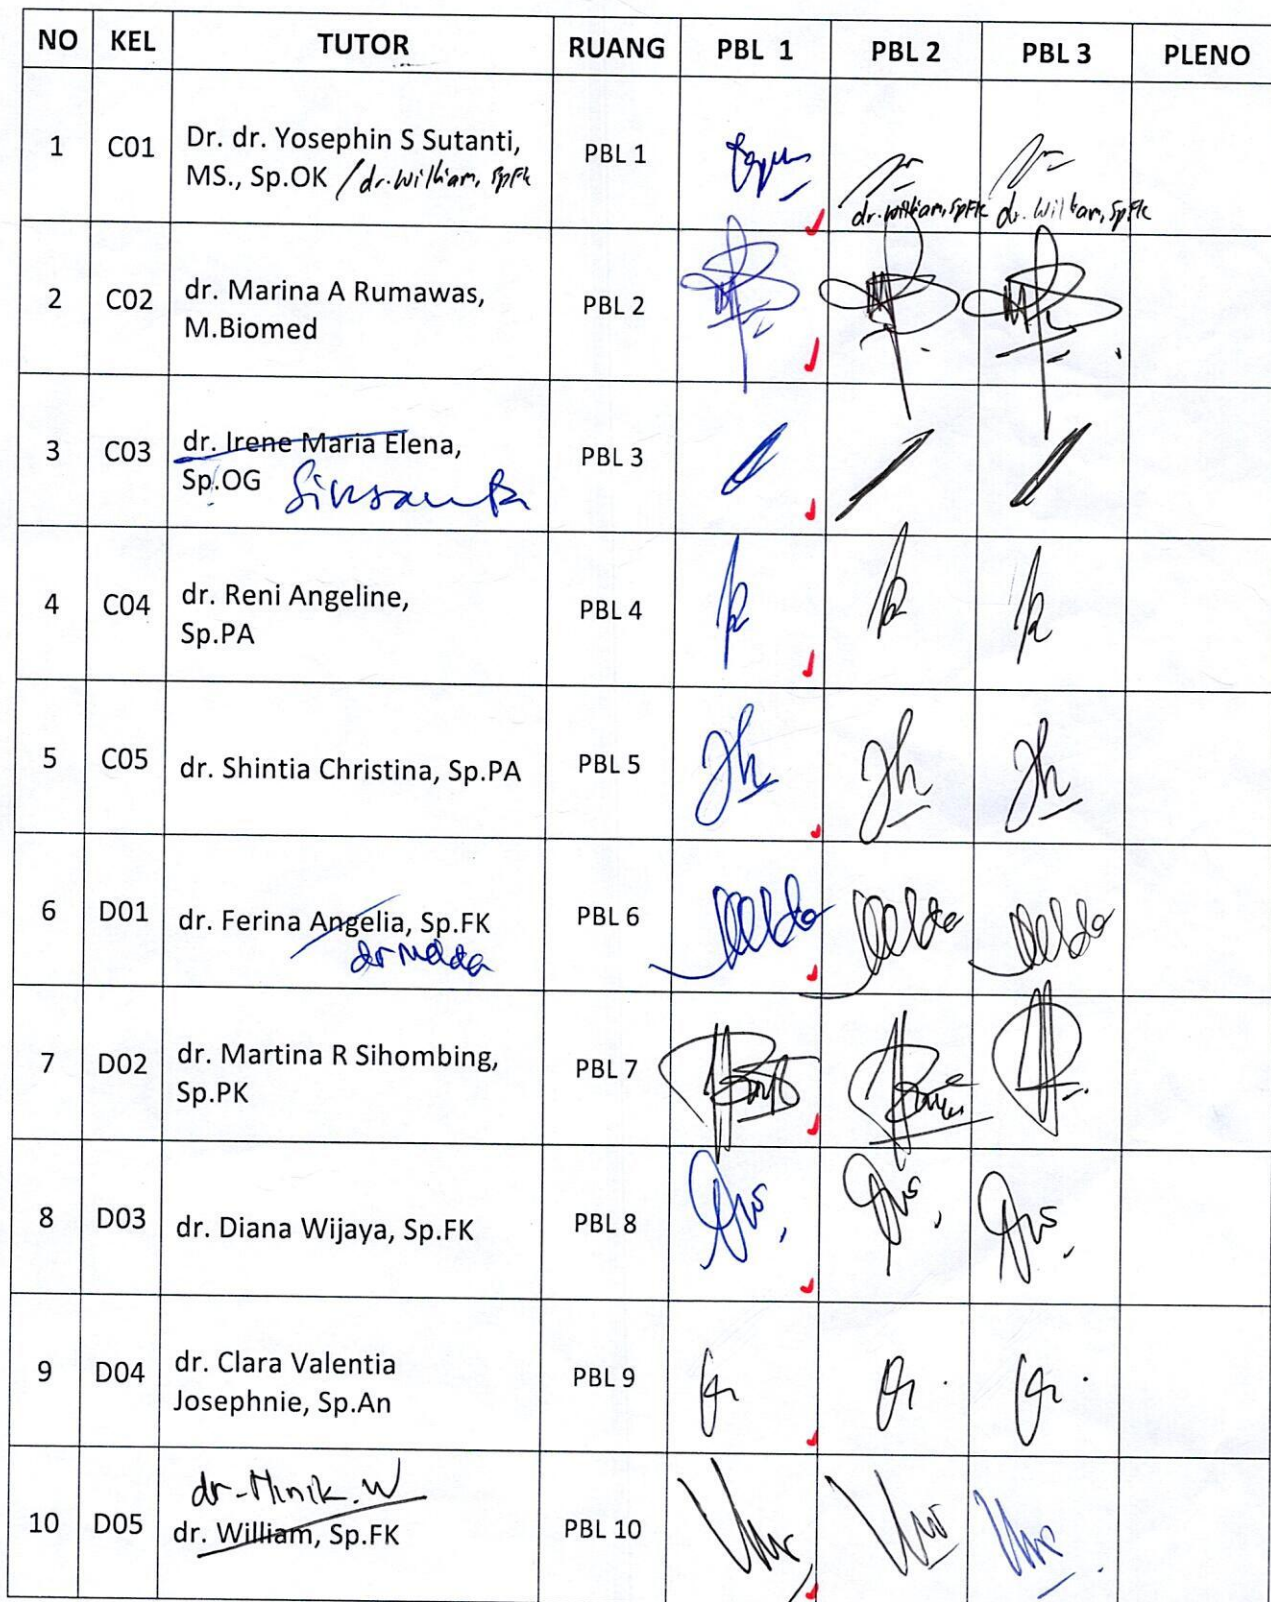 NO KEL TUTOR RUANG PBL 1 PBL 2 PBL 3 PLENO
1 C01 Dr. dr. Yosephin S Sutanti, PBL 1
MS., Sp.OK / dr. William, SpFK dr. William, SpFK dr. William, SpFK
2 C02 dr. Marina A Rumawas, PBL 2
M.Biomed
3 C03 dr. Irene Maria Elena, PBL 3
Sp.OG
4 C04 dr. Reni Angeline, PBL 4
Sp.PA
5 C05 dr. Shintia Christina, Sp.PA PBL 5
6 D01 dr. Ferina Angelia, Sp.FK PBL 6
7 D02 dr. Martina R Sihombing, PBL 7
Sp.PK
8 D03 dr. Diana Wijaya, Sp.FK PBL 8
9 D04 dr. Clara Valentia PBL 9
Josephnie, Sp.An
10 D05 dr. William, Sp.FK PBL 10